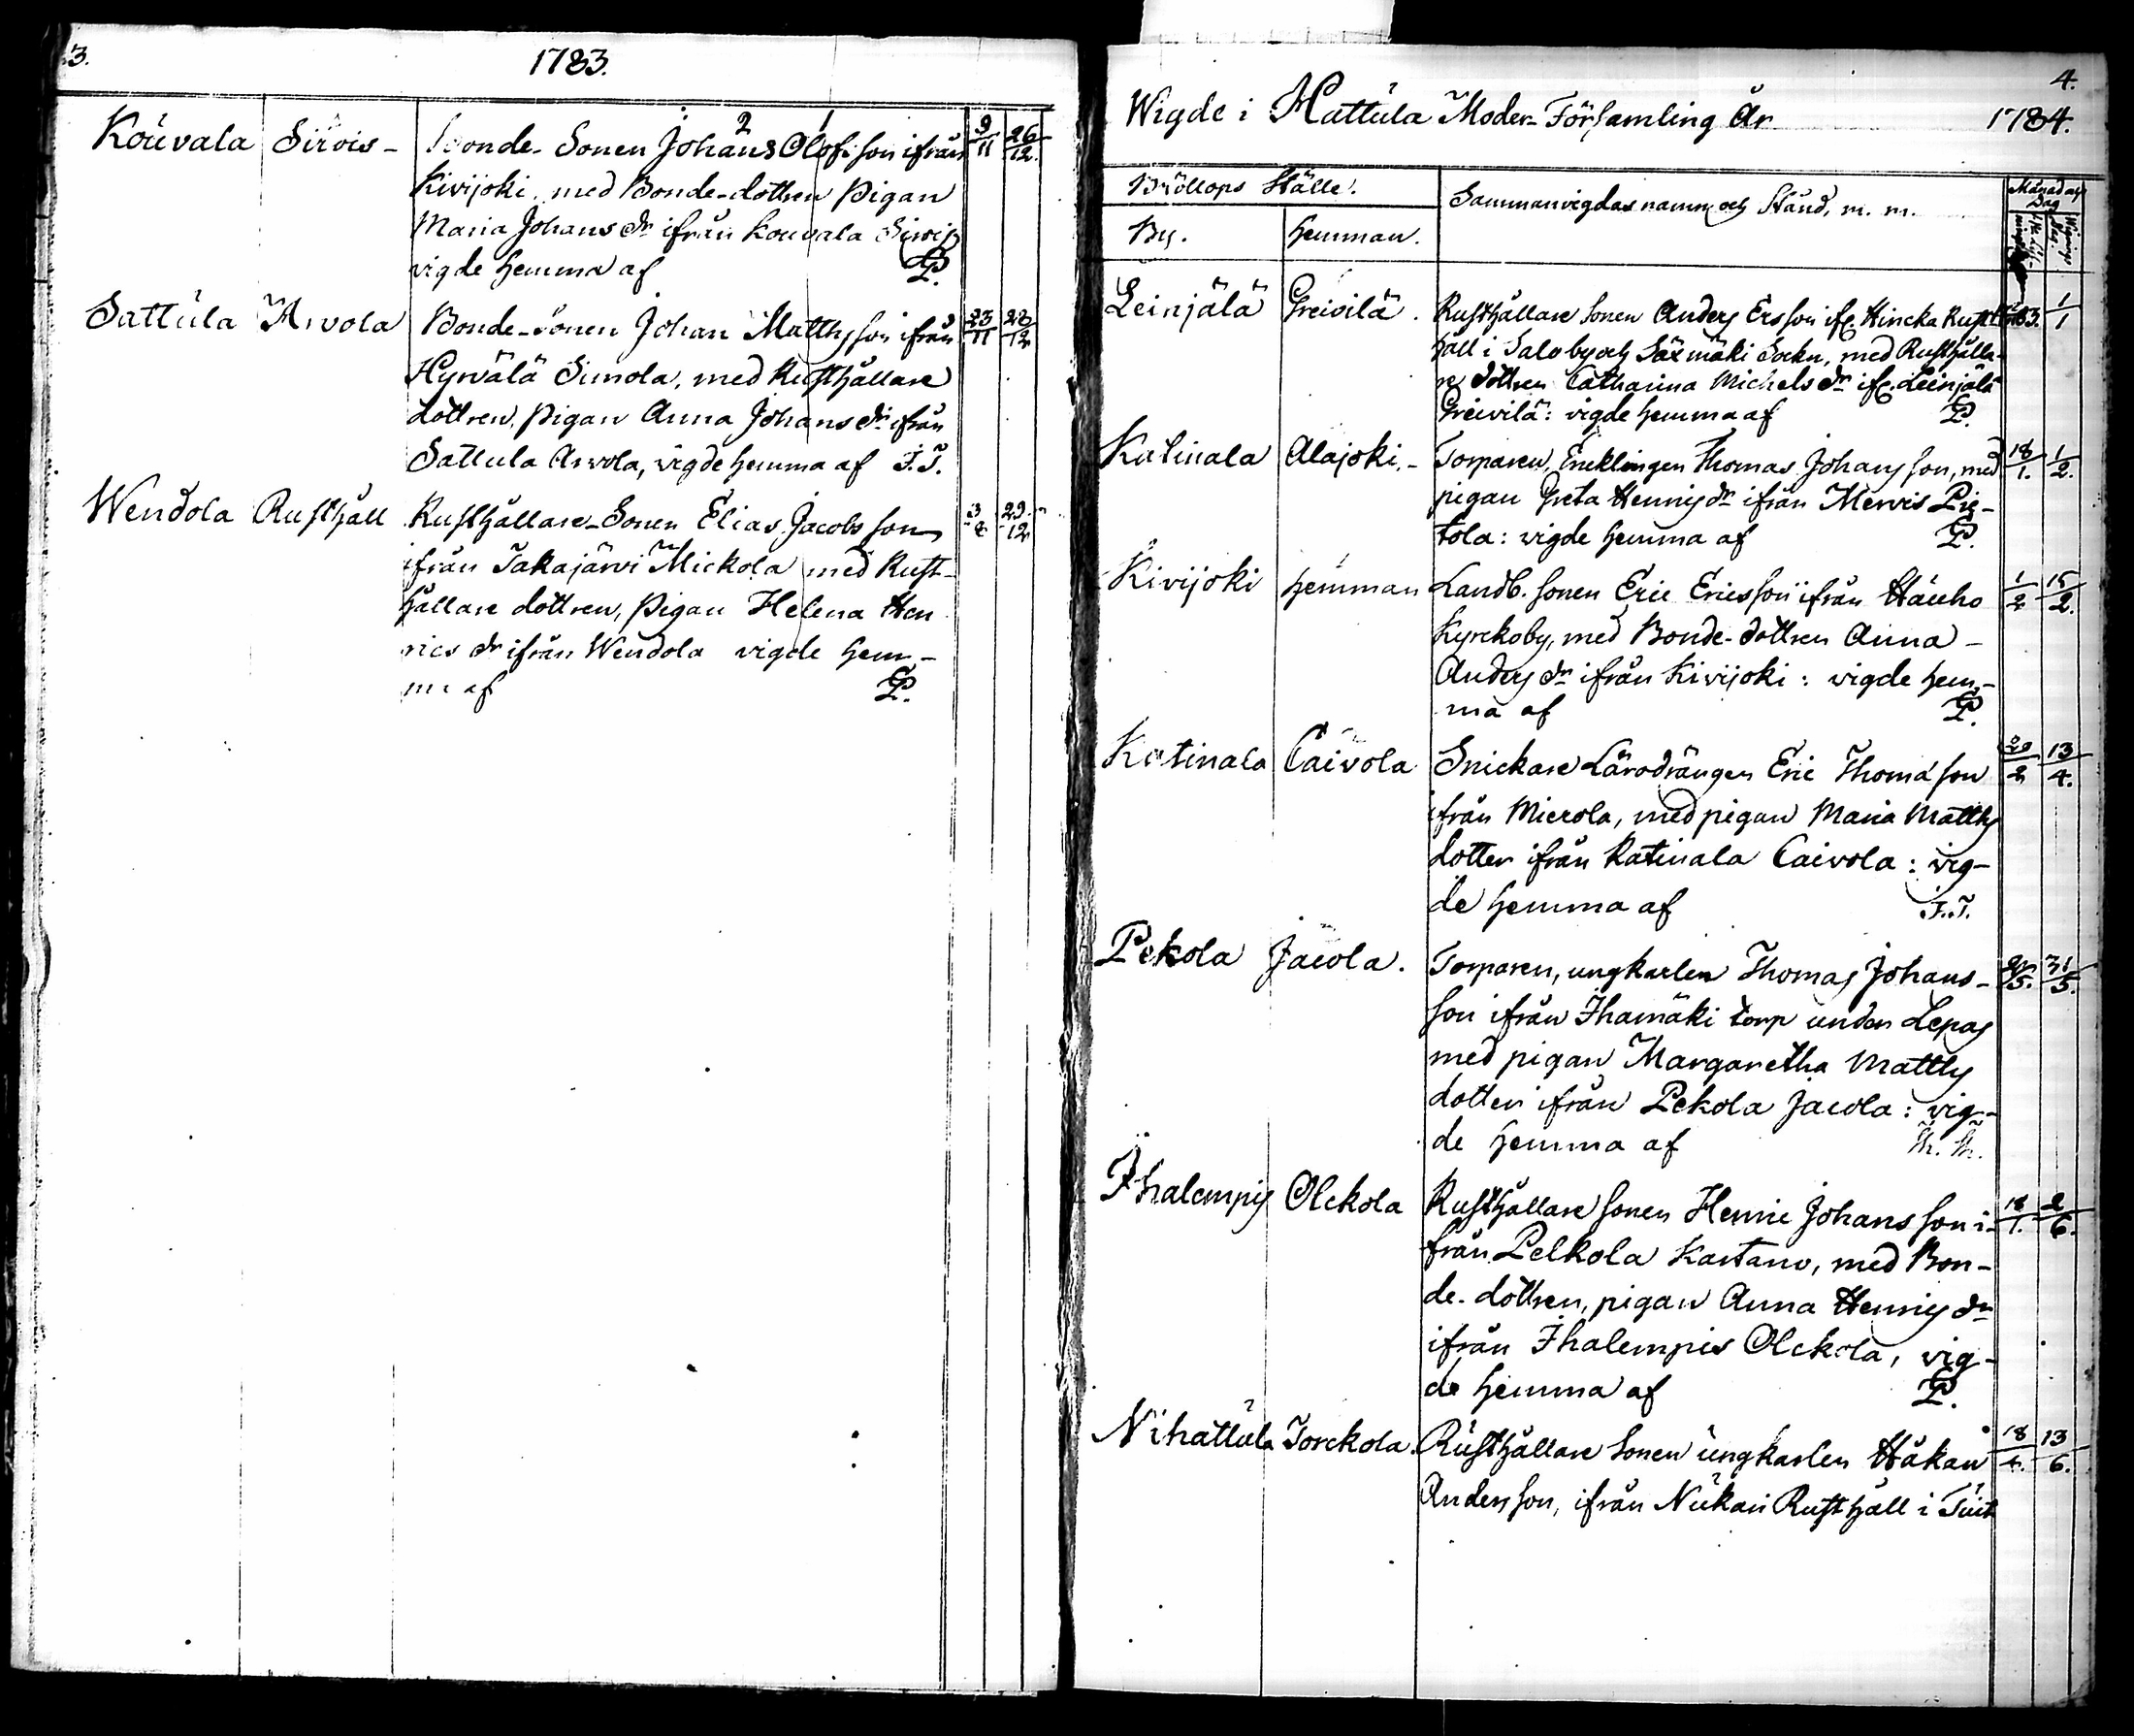 3.
1783.
Kouvala Sirois- Bonde-Sonen Johans Olofsson ifrån 9/11 26/12.
2 1
Kivijoki, med Bonde-dottren Pigan
Maria Johans dr ifrån Kouvala Sirois
vigde hemma af P.
Sattula Arvola Bonde-Sonen Johan Matthsson ifrån 23/11 28/12
Hyrvälä Simola, med Rusthållare
dottren, Pigan Anna Johans dr ifrån
Sattula Arvola, vigde hemma af I.T.
Wendola Rusthåll Rusthållare-Sonen Elias Jacobsson 29/12
ifrån Takajärvi Mickola med Rust-
hållare dottren, Pigan Helena Hen
rics dr ifrån Wendola vigde hem-
ma af P.
4.
Wigde i Hattula Moder-Församling År 1784.
Bröllops Ställe. Sammanvigdas namn och Stånd, m. m. Månad och Dag
By. Hemman.
Leinjälä Greivilä. Rusthållare Sonen Anders Ersson ifr. Hincka Rust 1/1
håll i Salo by och Säxmäki Sockn, med Rusthålla-
re dottren Catharina Michels dr ifr. Leinjälä
Greivilä: vigde hemma af P.
Katinala Alajoki.- Torparen, Encklingen Thomas Johansson, med 18/1. 1/2.
pigan Greta Henrics dr ifrån Mervis Pie-
tola: vigde hemma af P.
Kivijoki hemman Landb. Sonen Eric Ericsson ifrån Hauho 1/2 15/2.
Kyrckoby, med Bonde-dottren Anna-
Anders dr ifrån Kivijoki: vigde hem-
ma af P.
Katinala Caivola Snickare Lärodrängen Eric Thomasson 29/2 13/4.
ifrån Mierola, med pigan Maria Matths
dotter ifrån Katinala Caivola: vig-
de hemma af I.T.
Pekola Jacola. Torparen, ungkarlen Thomas Johans- 31/5.
son ifrån Ihamäki torp under Lepas
med pigan Margaretha Matths
dotter ifrån Pekola Jacola: vig-
de hemma af Th. Th.
Ihalempis Olckola Rusthållare Sonen Henric Johansson i- 18/1. 2/6.
från Pelkola Kartano, med Bon-
de-dottren, pigan Anna Henrics dr
ifrån Ihalempis Olckola, vig-
de hemma af P.
Nihattula Torckola. Rusthållare Sonen ungkarlen Håkan 18/4. 13/6.
Andersson, ifrån Nickari Rusthåll i